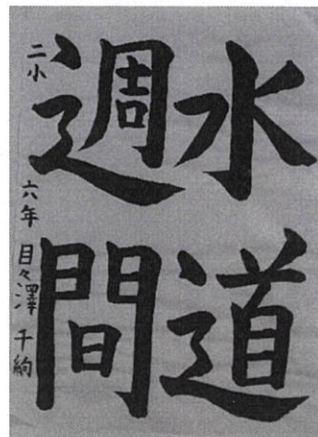 水道
週間
二小 六年 目々澤 千絢